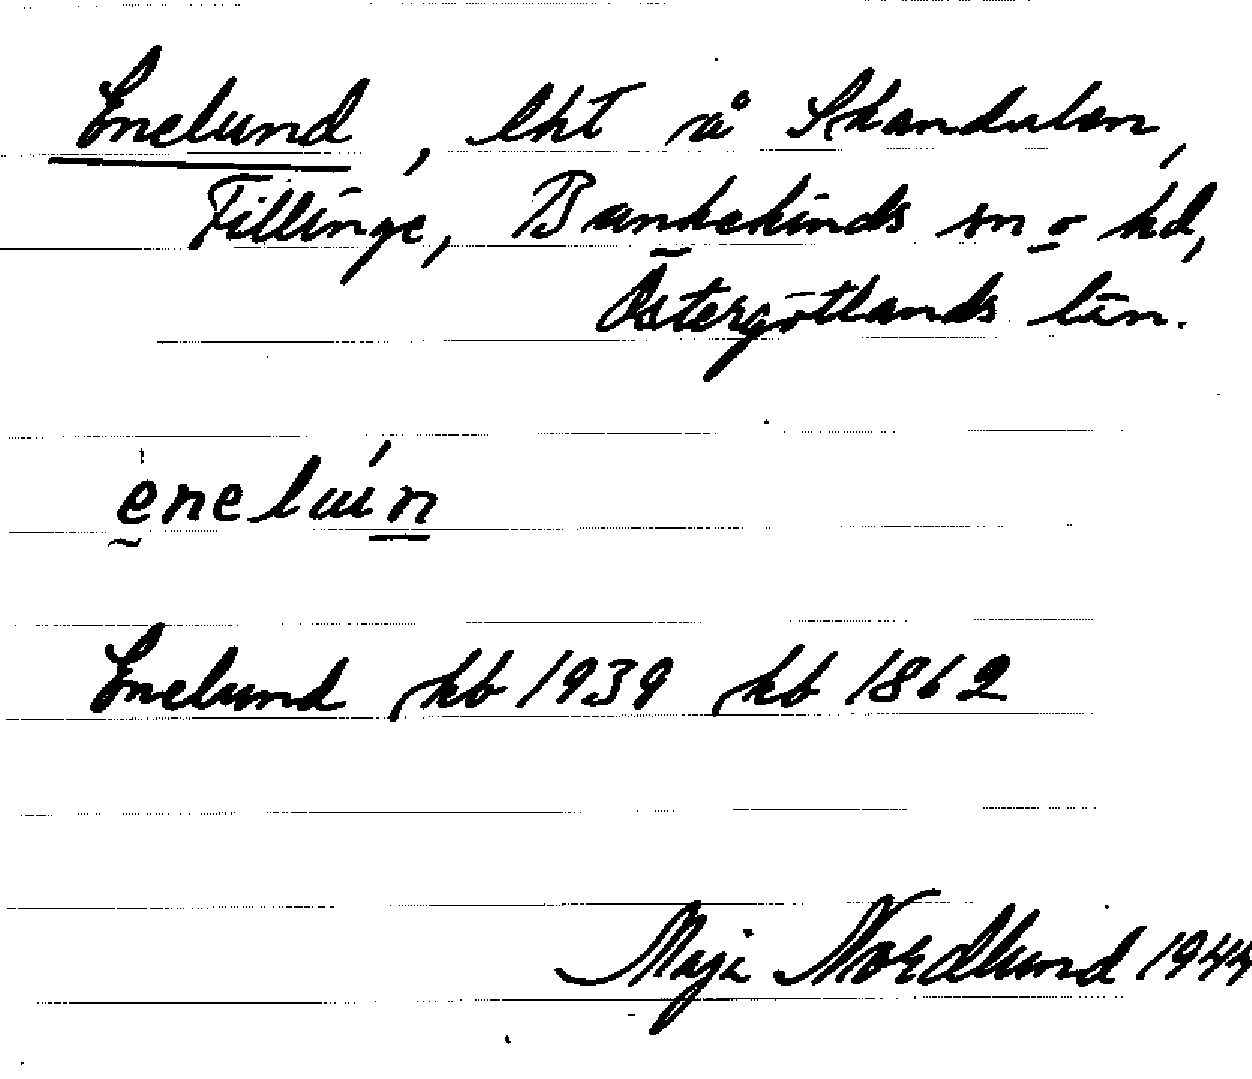 Enelund, lht å Skandulen,
Fillinge, Bankekinds sn o hd,
Östergötlands län.
enelun
Enelund hb 1939 hb 1862
Maji Nordlund 1944